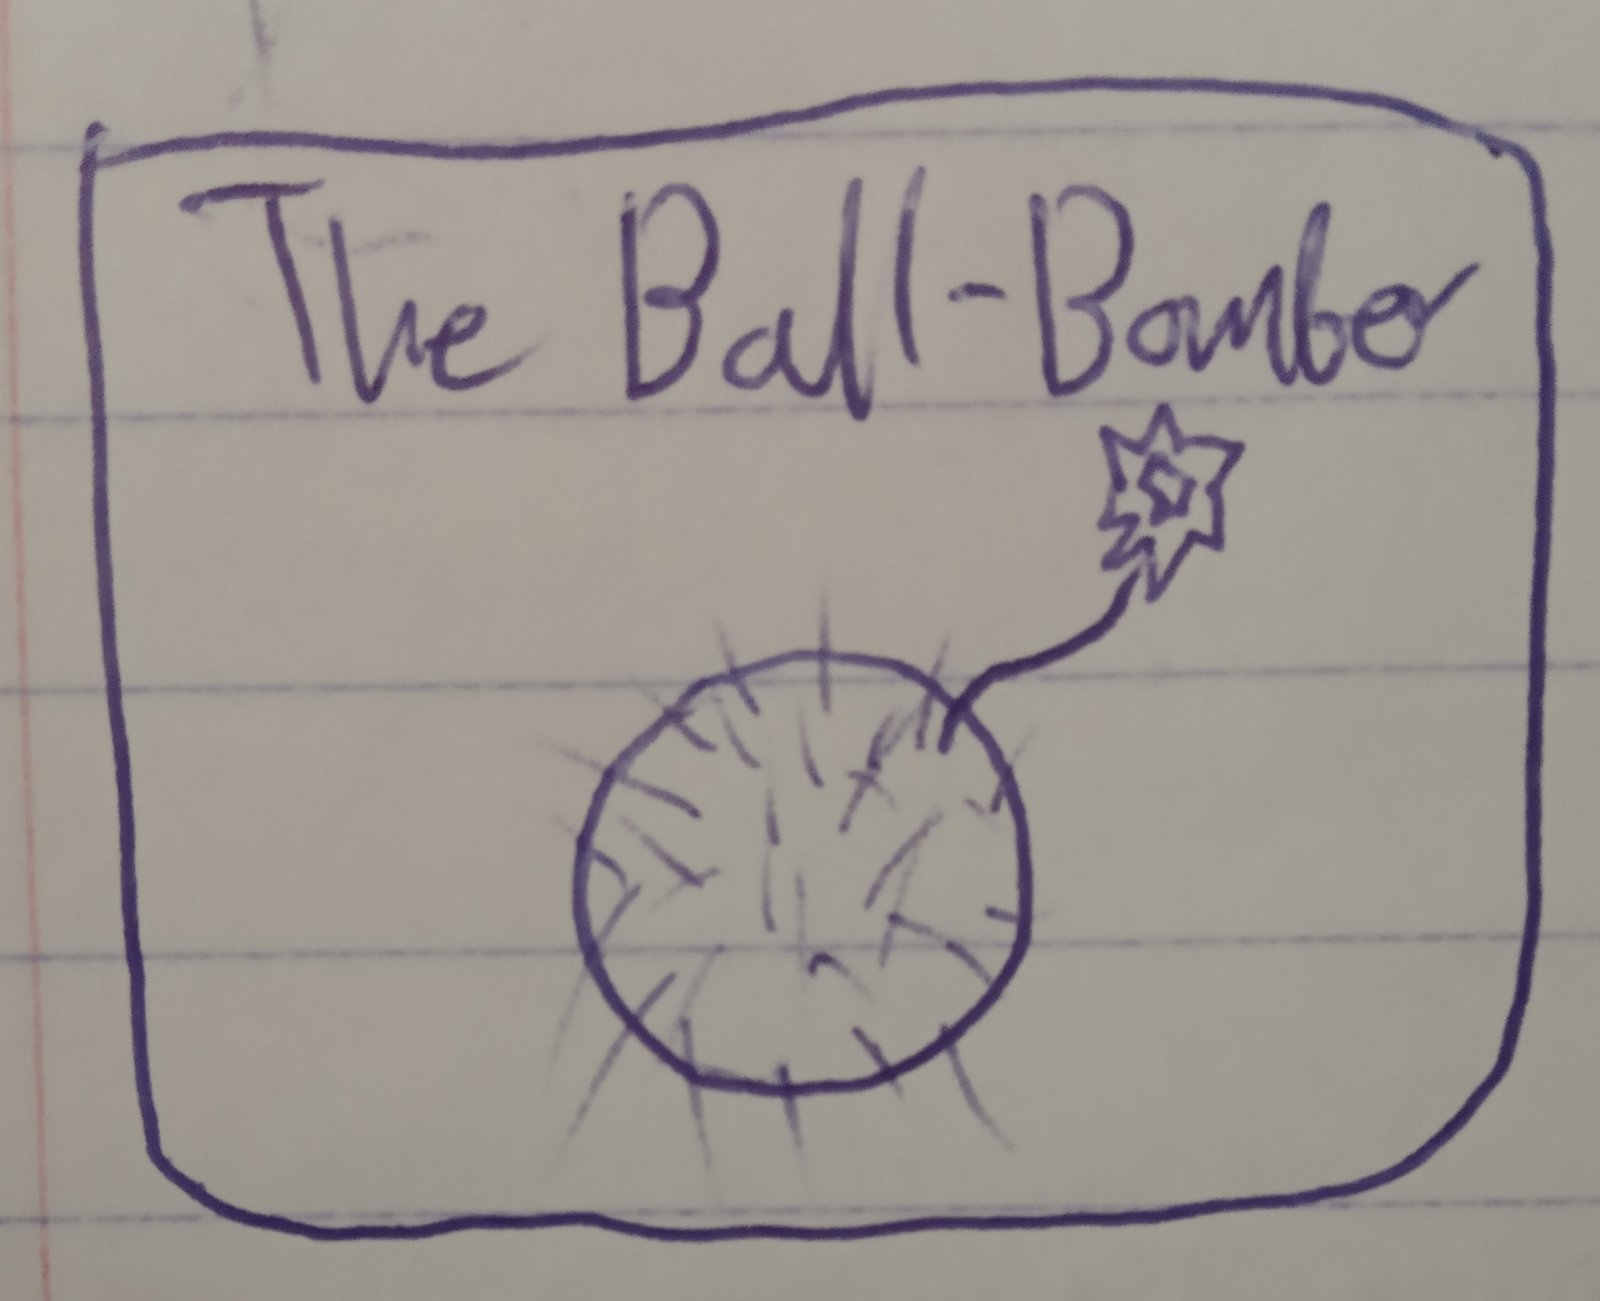 The Ball-Bomber